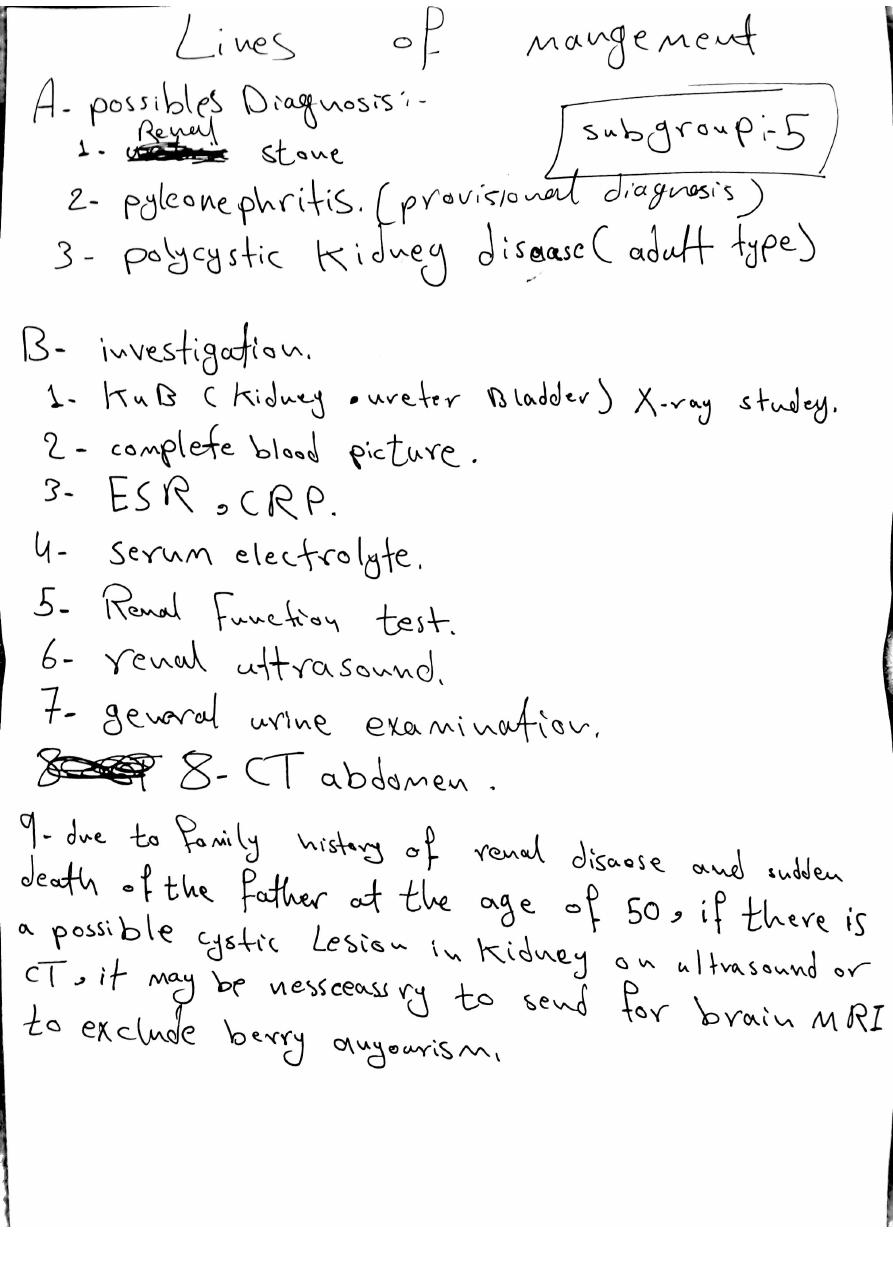 Lines of mangement
A- possibles Diagnosis:-
subgroup:-5
1. Renal stone
2- pyleonephritis. (provisional diagnosis)
3- polycystic Kidney disease (adult type)
B- investigation.
1- KuB (Kidney , ureter Bladder) X-ray studey.
2- complete blood picture.
3- ESR , CRP.
4- serum electrolyte.
5- Renal Function test.
6- renal ultrasound.
7- general urine examination.
8- CT abdomen.
9- due to family history of renal disaese and sudden
death of the father at the age of 50, if there is
a possible cystic Lesion in Kidney on ultrasound or
CT, it may be nessceassry to send for brain MRI
to exclude berry angourism.